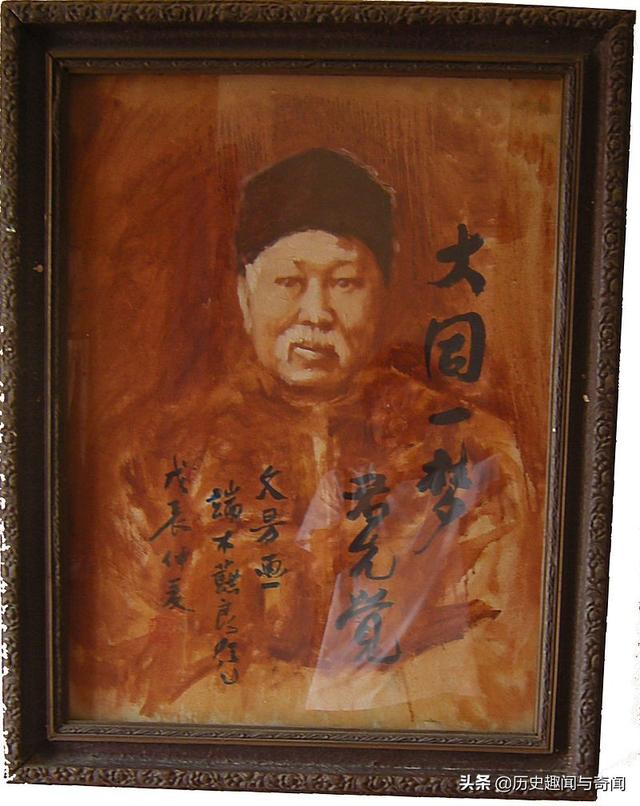 大同一梦
君先觉
文景画
端木蕻良
戊辰仲夏
头条 @历史趣闻与奇闻